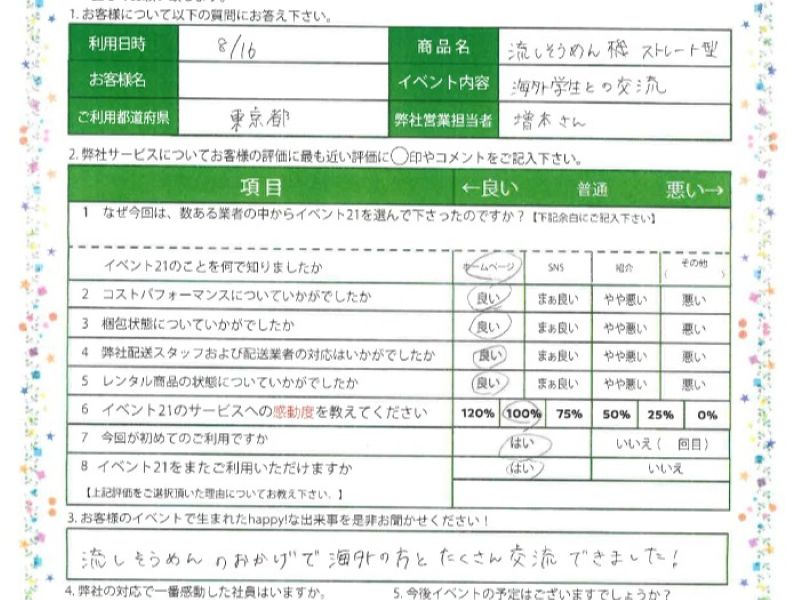 1. お客様について以下の質問にお答え下さい。
利用日時 8/16 商品名 流しそうめん機 ストレート型
お客様名 イベント内容 海外学生との交流
ご利用都道府県 東京都 弊社営業担当者 増本さん
2. 弊社サービスについてお客様の評価に最も近い評価に○印やコメントをご記入下さい。
項目 ←良い 普通 悪い→
1 なぜ今回は、数ある業者の中からイベント21を選んで下さったのですか？【下記余白にご記入下さい】
イベント21のことを何で知りましたか ホームページ SNS 紹介 その他
( )
2 コストパフォーマンスについていかがでしたか 良い まぁ良い やや悪い 悪い
3 梱包状態についていかがでしたか 良い まぁ良い やや悪い 悪い
4 弊社配送スタッフおよび配送業者の対応はいかがでしたか 良い まぁ良い やや悪い 悪い
5 レンタル商品の状態についていかがでしたか 良い まぁ良い やや悪い 悪い
6 イベント21のサービスへの感動度を教えてください 120% 100% 75% 50% 25% 0%
7 今回が初めてのご利用ですか はい いいえ( 回目)
8 イベント21をまたご利用いただけますか はい いいえ
【上記評価をご選択頂いた理由についてお教え下さい。】
3. お客様のイベントで生まれたhappy!な出来事を是非お聞かせください！
流しそうめんのおかげで海外の方とたくさん交流できました！
4. 弊社の対応で一番感動した社員はいますか。 5. 今後イベントの予定はございますでしょうか？